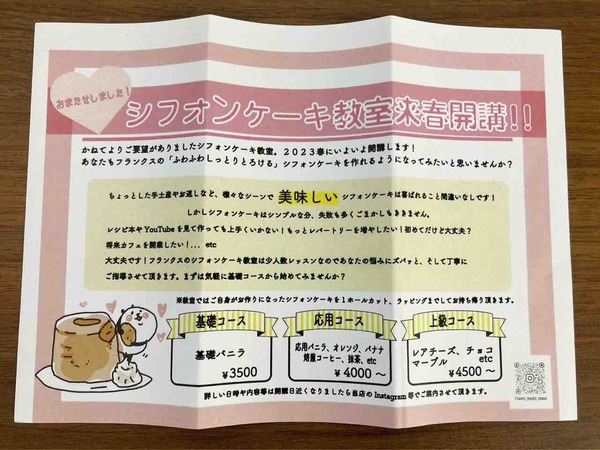 おまたせしました！
シフォンケーキ教室来春開講!!
かねてよりご要望がありましたシフォンケーキ教室。2023春にいよいよ開講します！
あなたもフランクスの「ふわふわしっとりとろける」シフォンケーキを作れるようになってみたいと思いませんか？
ちょっとした手土産やお返しなど、様々なシーンで 美味しい シフォンケーキは喜ばれること間違いなしです！
しかしシフォンケーキはシンプルな分、失敗も多くごまかしもききません。
レシピ本やYouTubeを見て作っても上手くいかない！もっとレパートリーを増やしたい！初めてだけど大丈夫？
将来カフェを開業したい！... etc
大丈夫です！フランクスのシフォンケーキ教室は少人数レッスンなのであなたの悩みにズバッと、そして丁寧に
ご指導させて頂きます。まずは気軽に基礎コースから始めてみませんか？
※教室ではご自身がお作りになったシフォンケーキを1ホールカット、ラッピングまでしてお持ち帰り頂きます。
基礎コース
基礎バニラ
¥3500
応用コース
応用バニラ、オレンジ、バナナ
焙煎コーヒー、抹茶、etc
¥4000〜
上級コース
レアチーズ、チョコ
マーブル etc
¥4500〜
詳しい日時や内容等は開講日近くなりましたら当店のInstagram等でご案内させて頂きます。